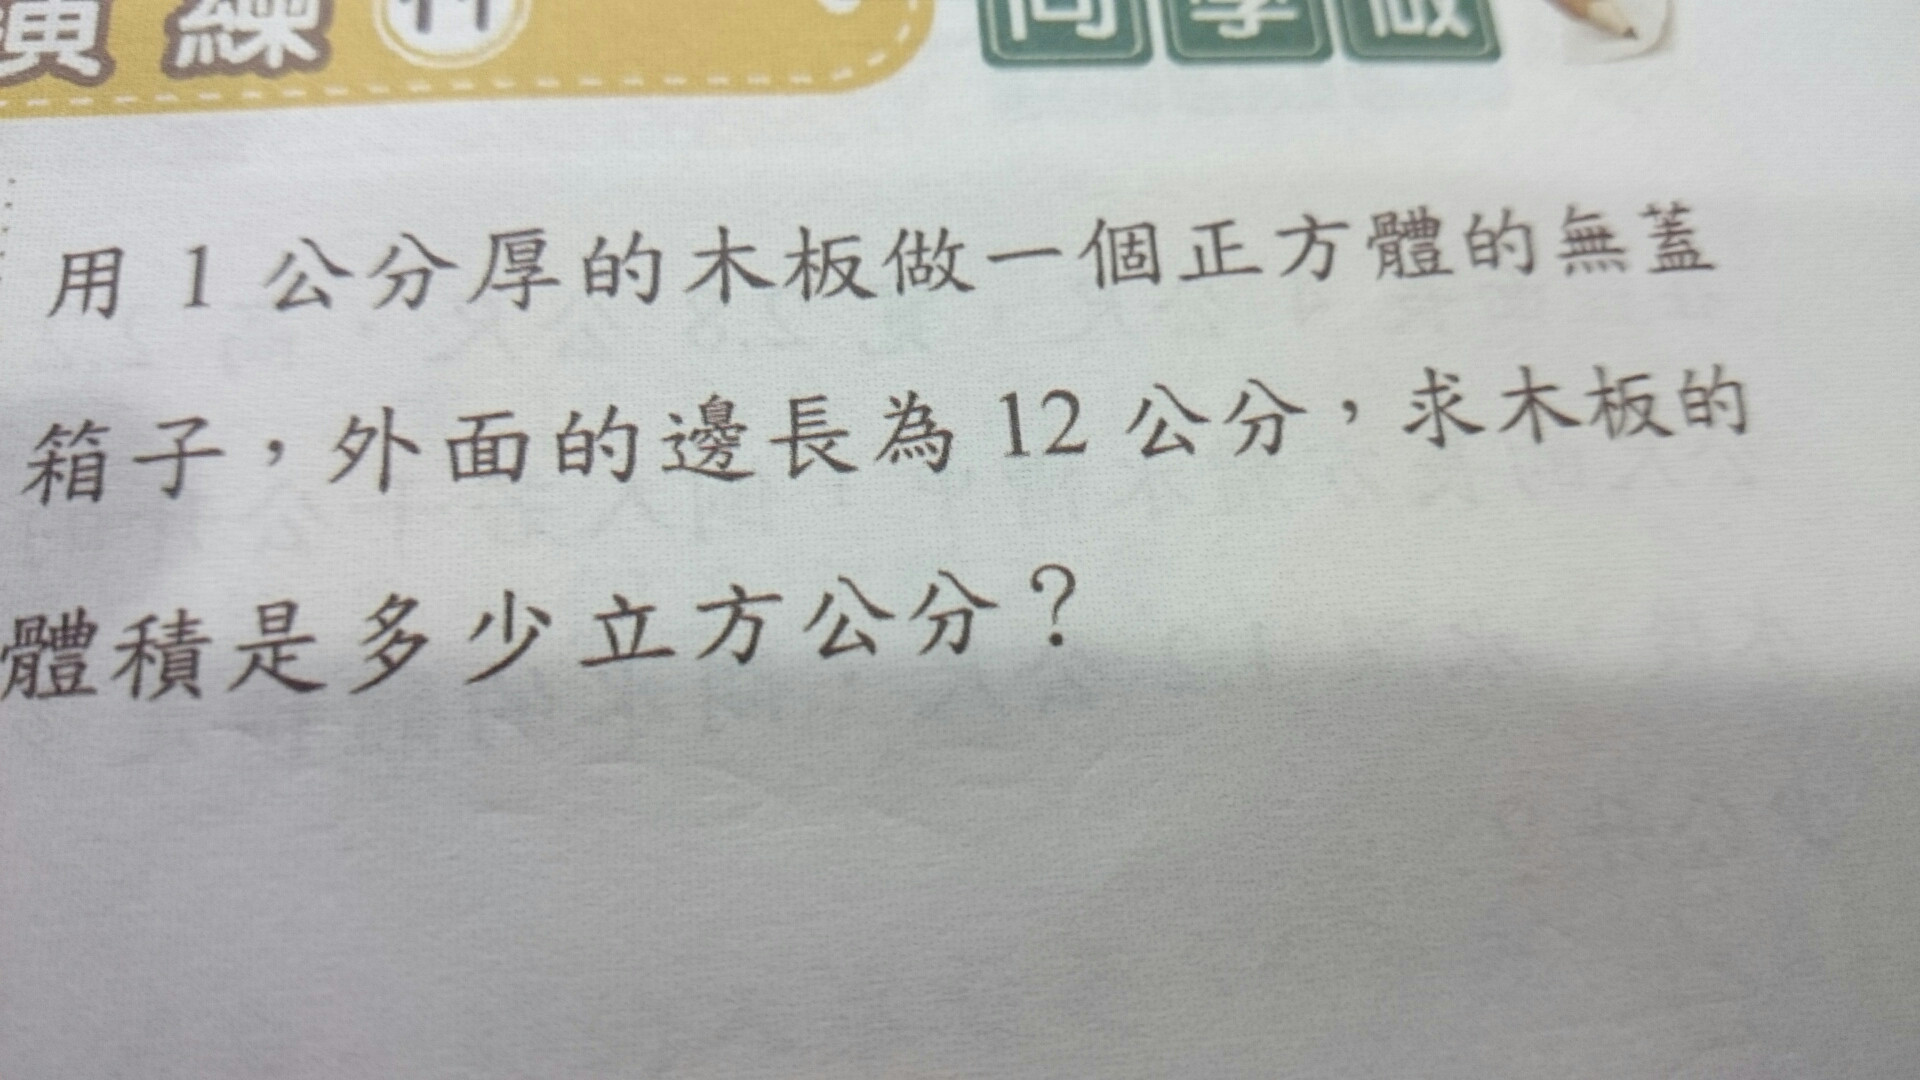 演練 11 同學做
用 1 公分厚的木板做一個正方體的無蓋
箱子，外面的邊長為 12 公分，求木板的
體積是多少立方公分？